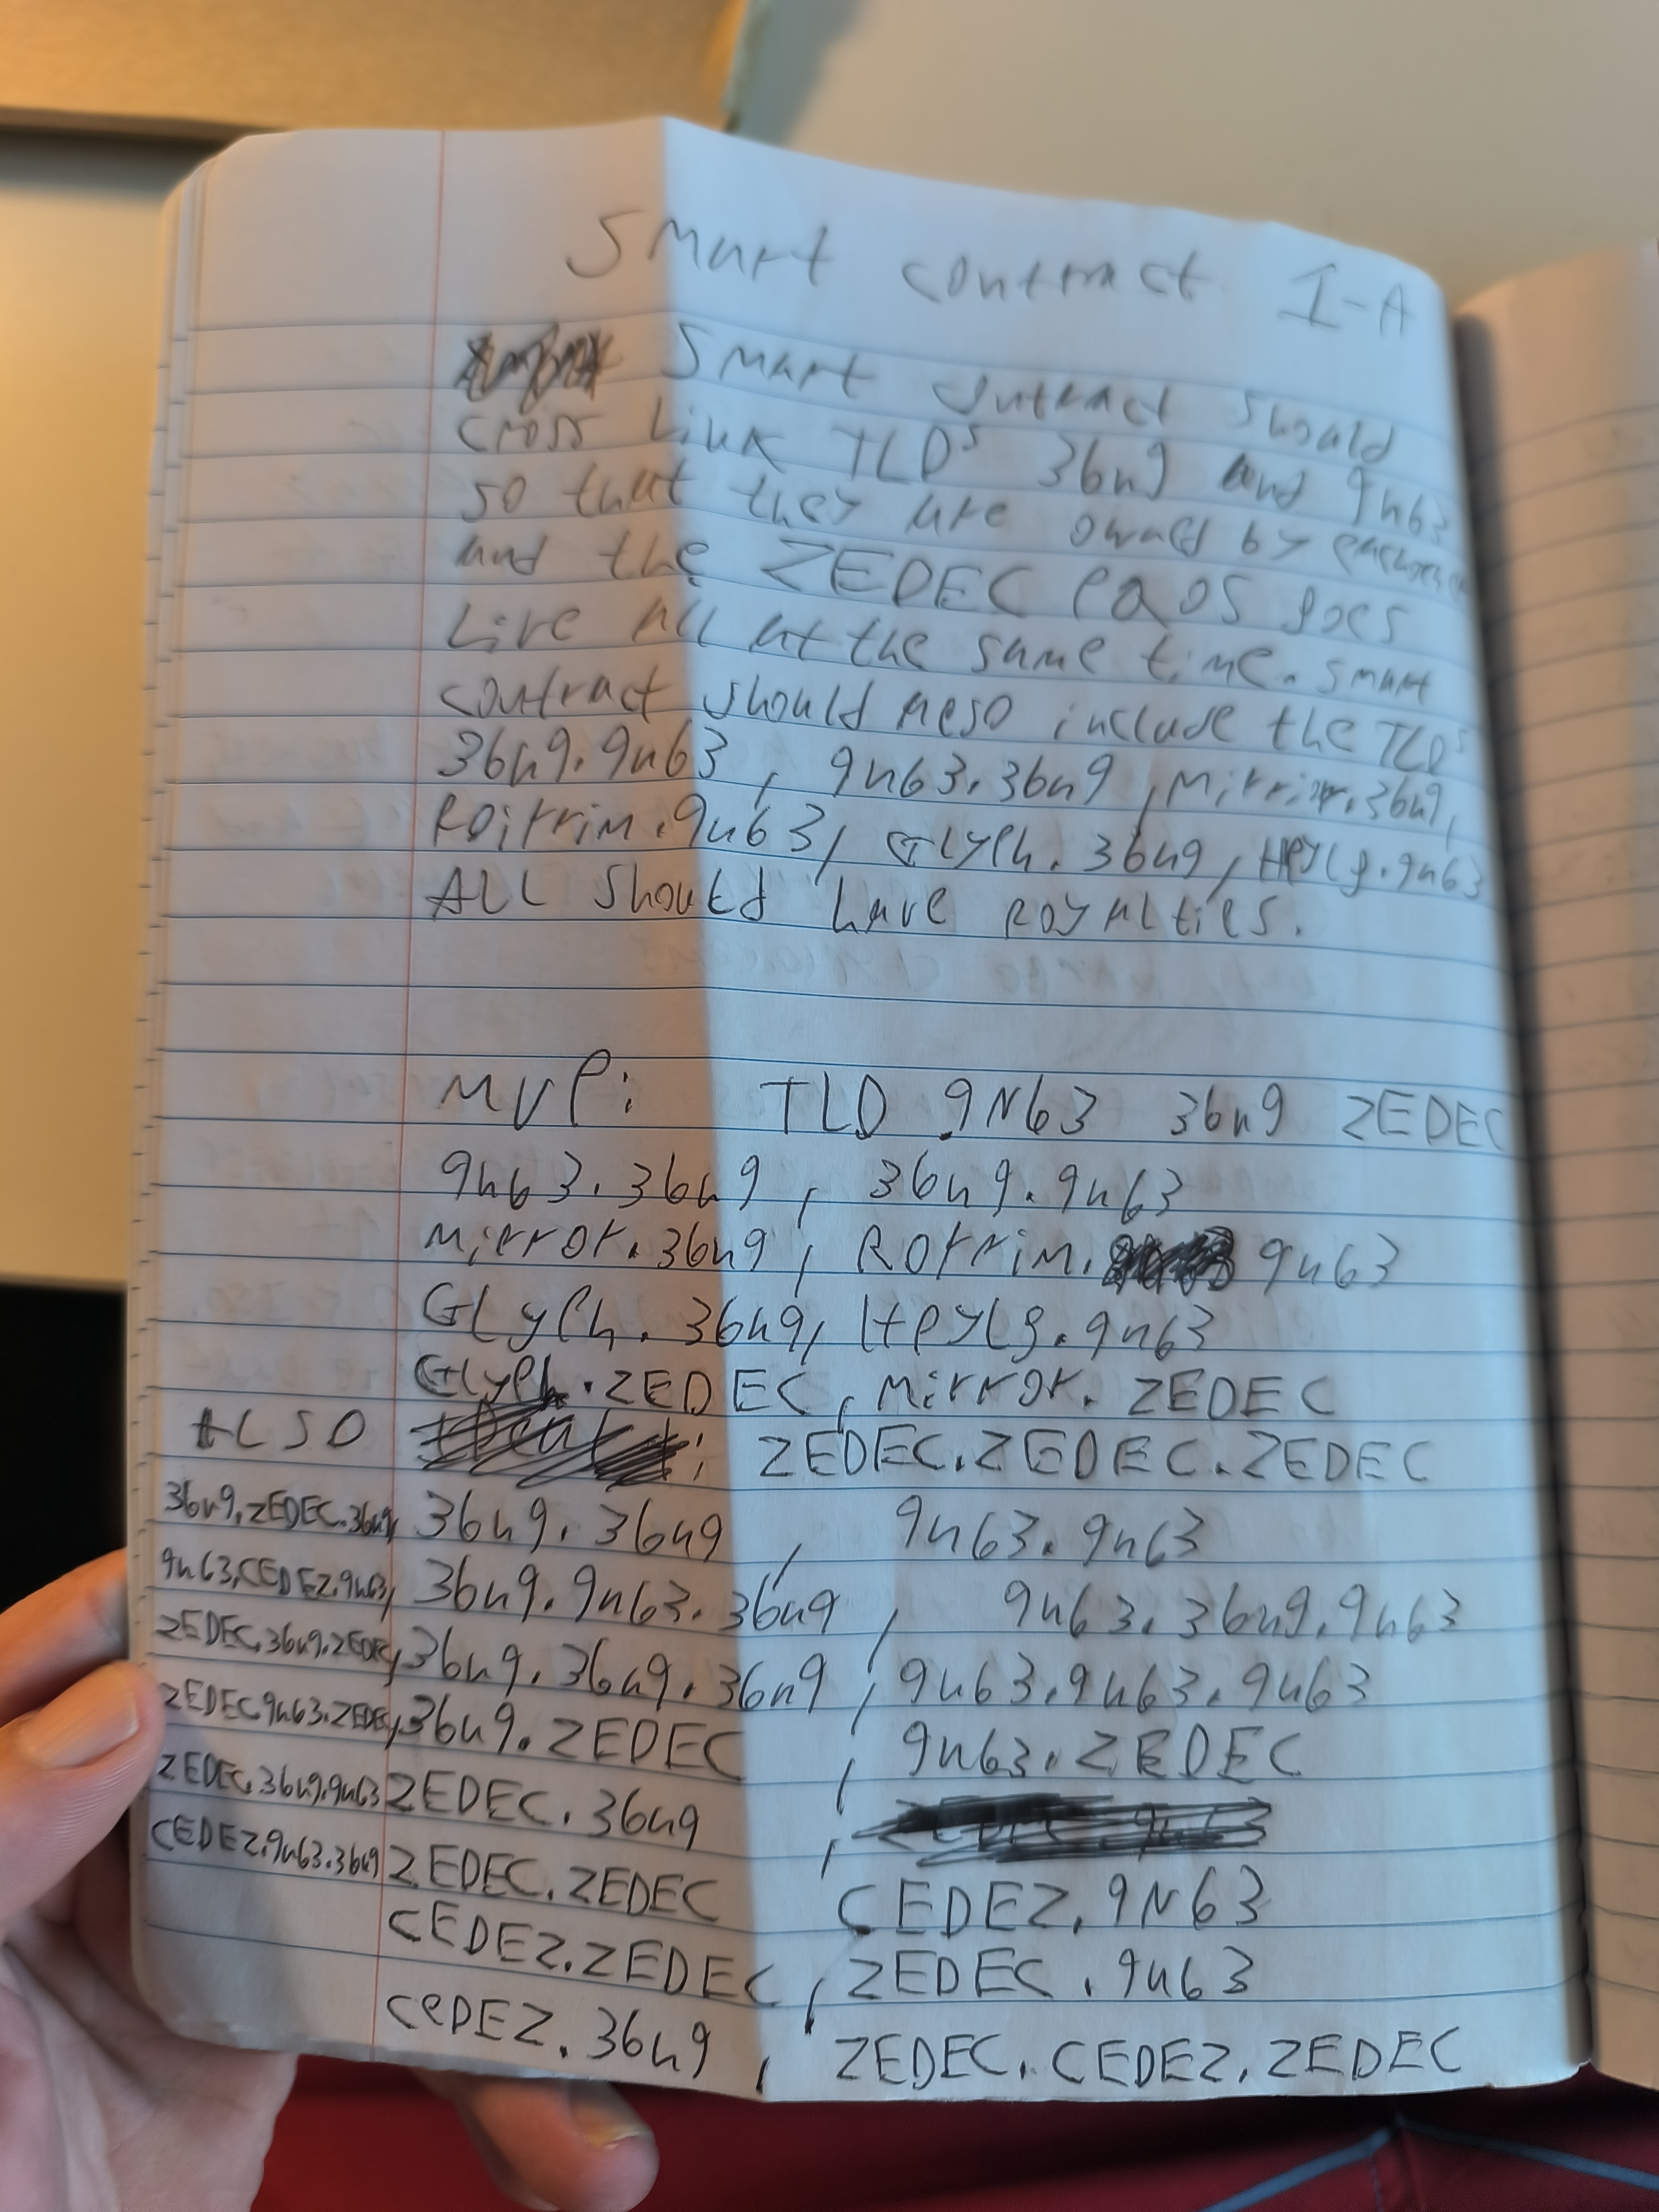 Smart contract 1-A
Smart contract should
cross Link TLDs 36n9 and 9n63
so that they are owned by
and the ZEDEC PQOS goes
Live all at the same time. smart
contract should also include the TLDs
36n9.9n63, 9n63.36n9, Mirrior.36n9,
Roirrim.9n63, GLyph.36n9, HPYLg.9n63
ALL Should have ROYALties.
MVP: TLD .9N63 36n9 ZEDEC
9n63.36n9, 36n9.9n63
Mirror.36n9, Rorrim. 9n63
GLyph.36n9, HPYLg.9n63
GLyph.ZEDEC, Mirror.ZEDEC
ALSO : ZEDEC.ZEDEC.ZEDEC
36n9.ZEDEC.36n9, 36n9.36n9, 9n63.9n63
9n63.CEDEZ.9n63, 36n9.9n63.36n9, 9n63.36n9.9n63
ZEDEC.36n9.ZEDEC, 36n9.36n9.36n9, 9n63.9n63.9n63
ZEDEC.9n63.ZEDEC, 36n9.ZEDEC, 9n63.ZEDEC
ZEDEC.36n9.9n63 ZEDEC.36n9,
CEDEZ.9n63.36n9 ZEDEC.ZEDEC CEDEZ.9N63
CEDEZ.ZEDEC, ZEDEC.9n63
CeDEZ.36n9, ZEDEC.CEDEZ.ZEDEC